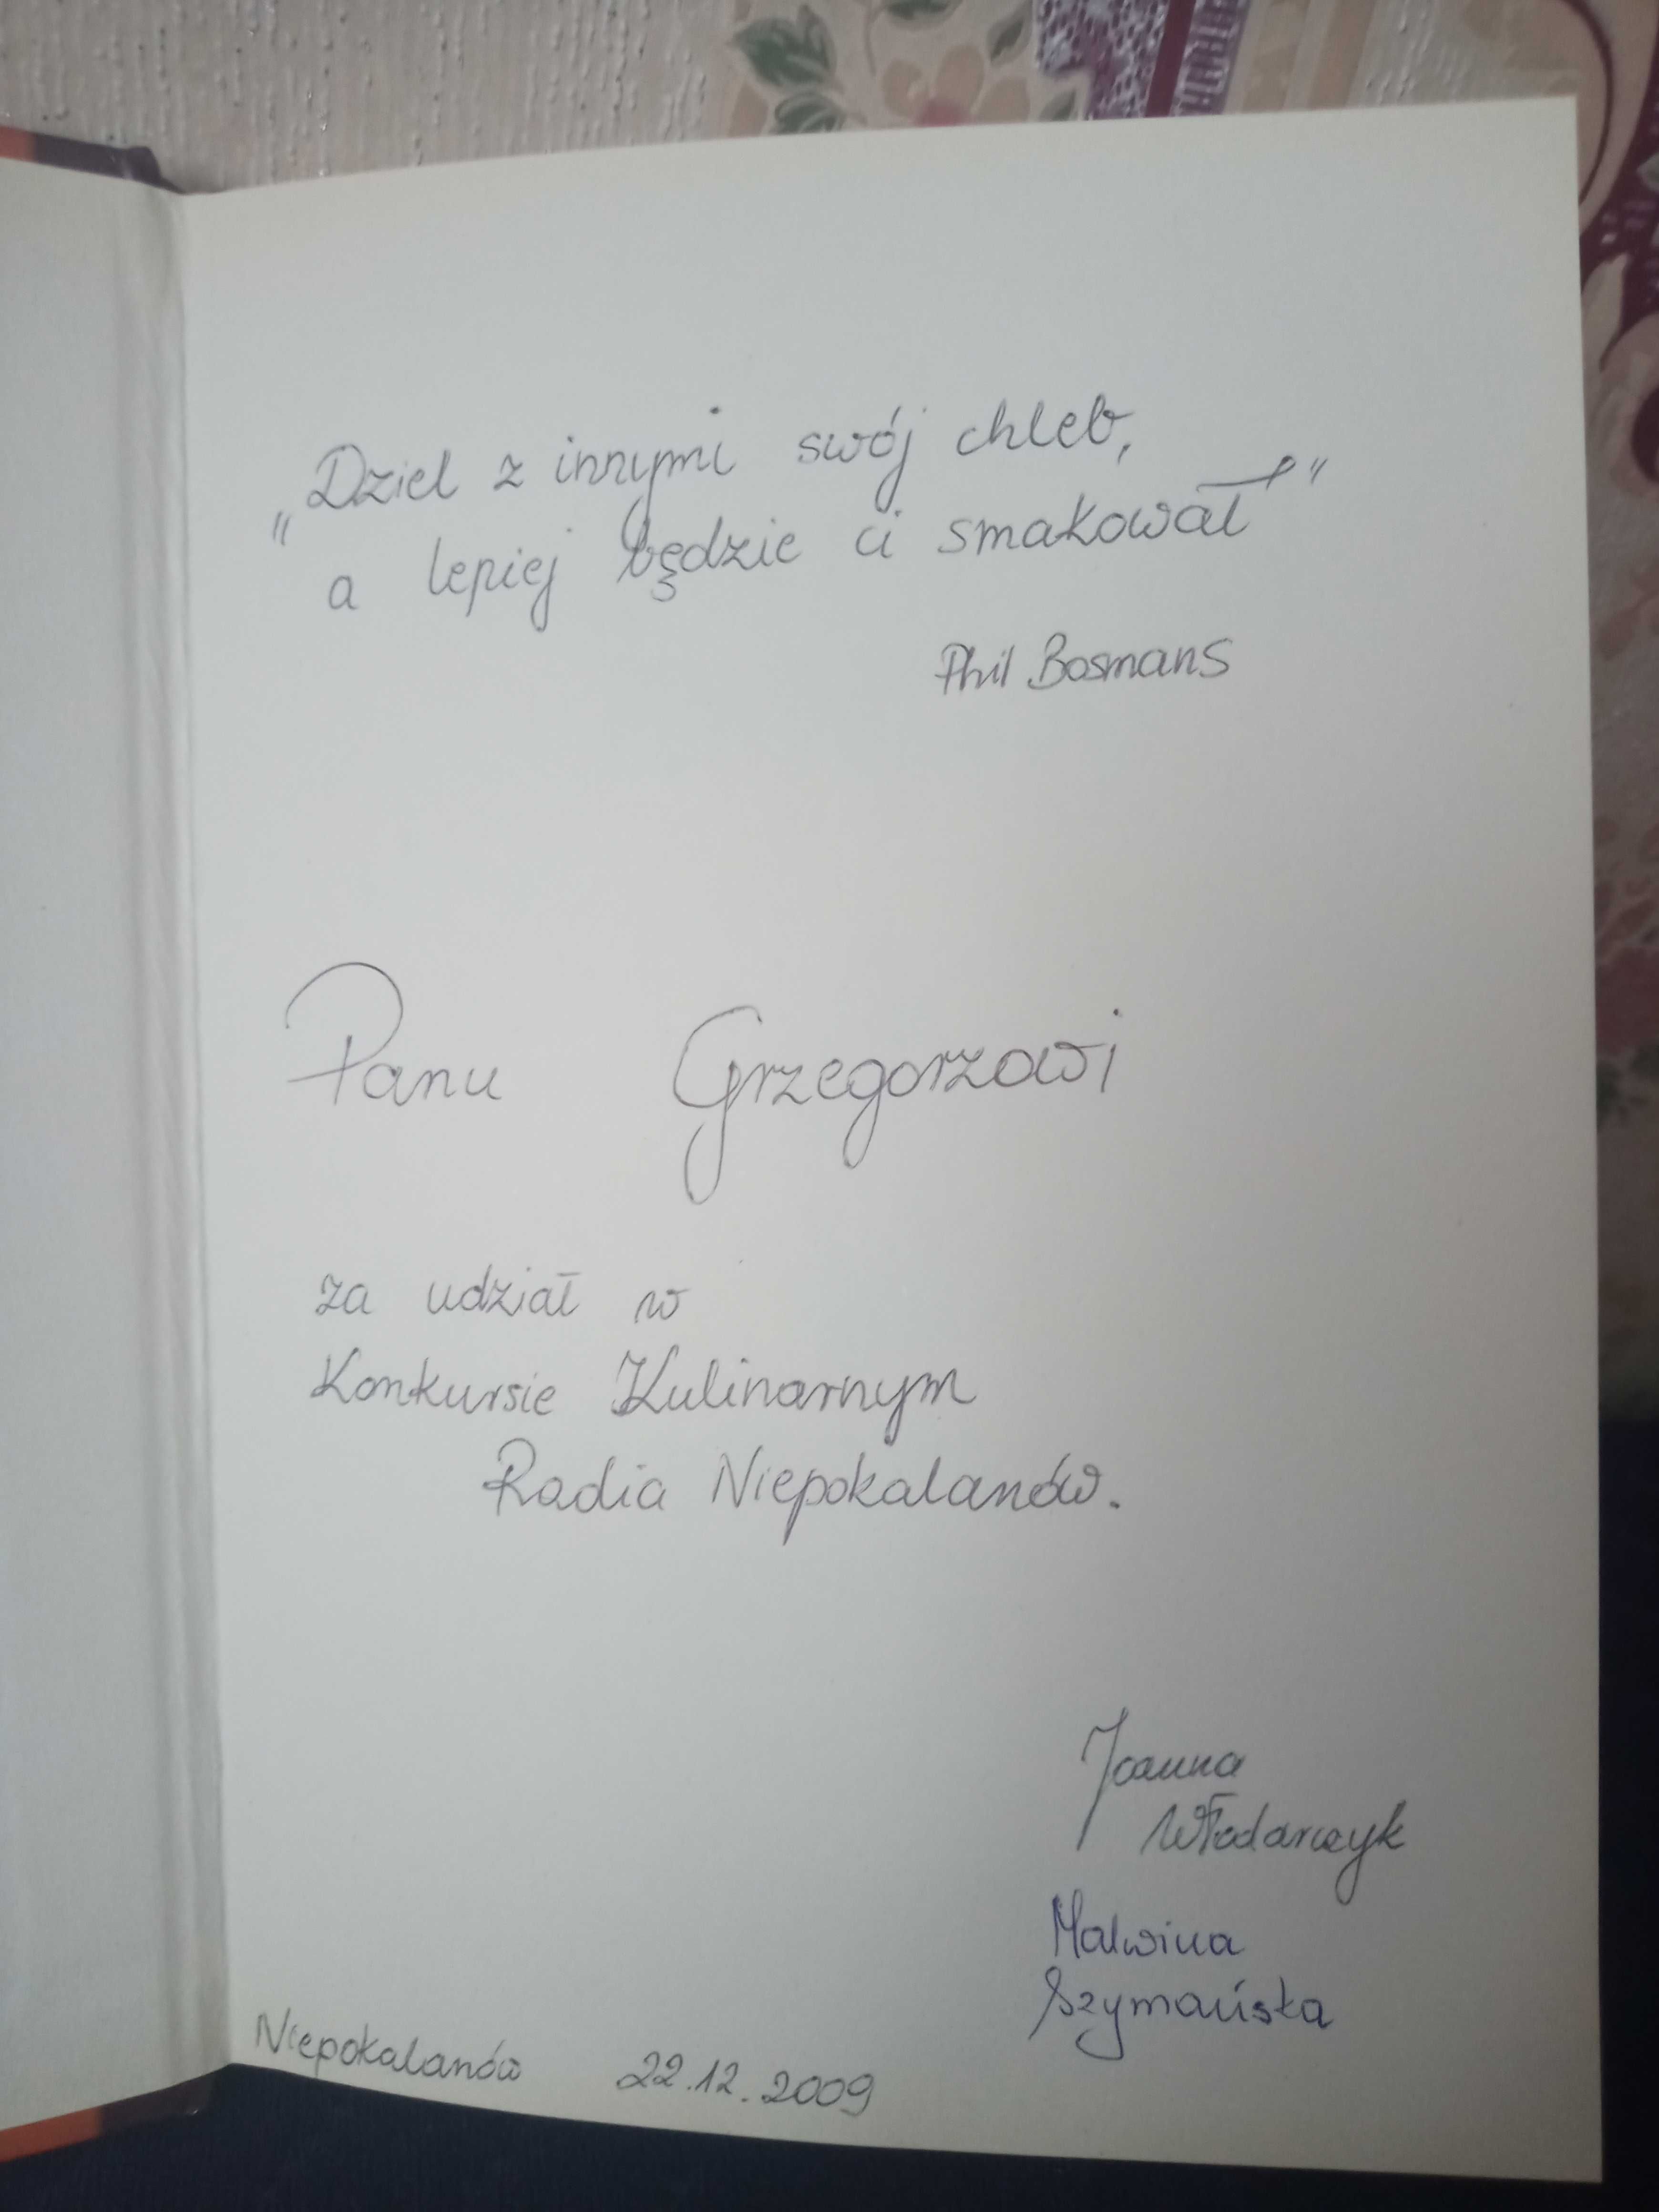 „Dziel z innymi swój chleb,
a lepiej będzie ci smakował"
Phil Bosmans
Panu Grzegorzowi
za udział w
Konkursie Kulinarnym
Radia Niepokalanów.
Joanna
Włodarczyk
Malwina
Szymańska
Niepokalanów 22.12.2009